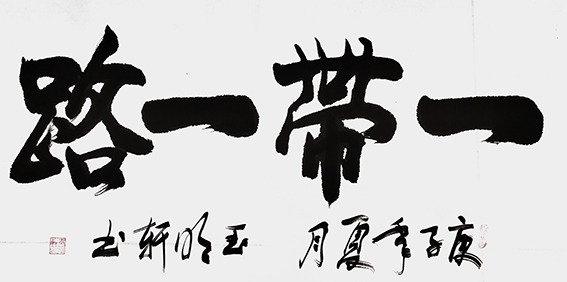 一帶一路
庚子年夏月 玉明軒书